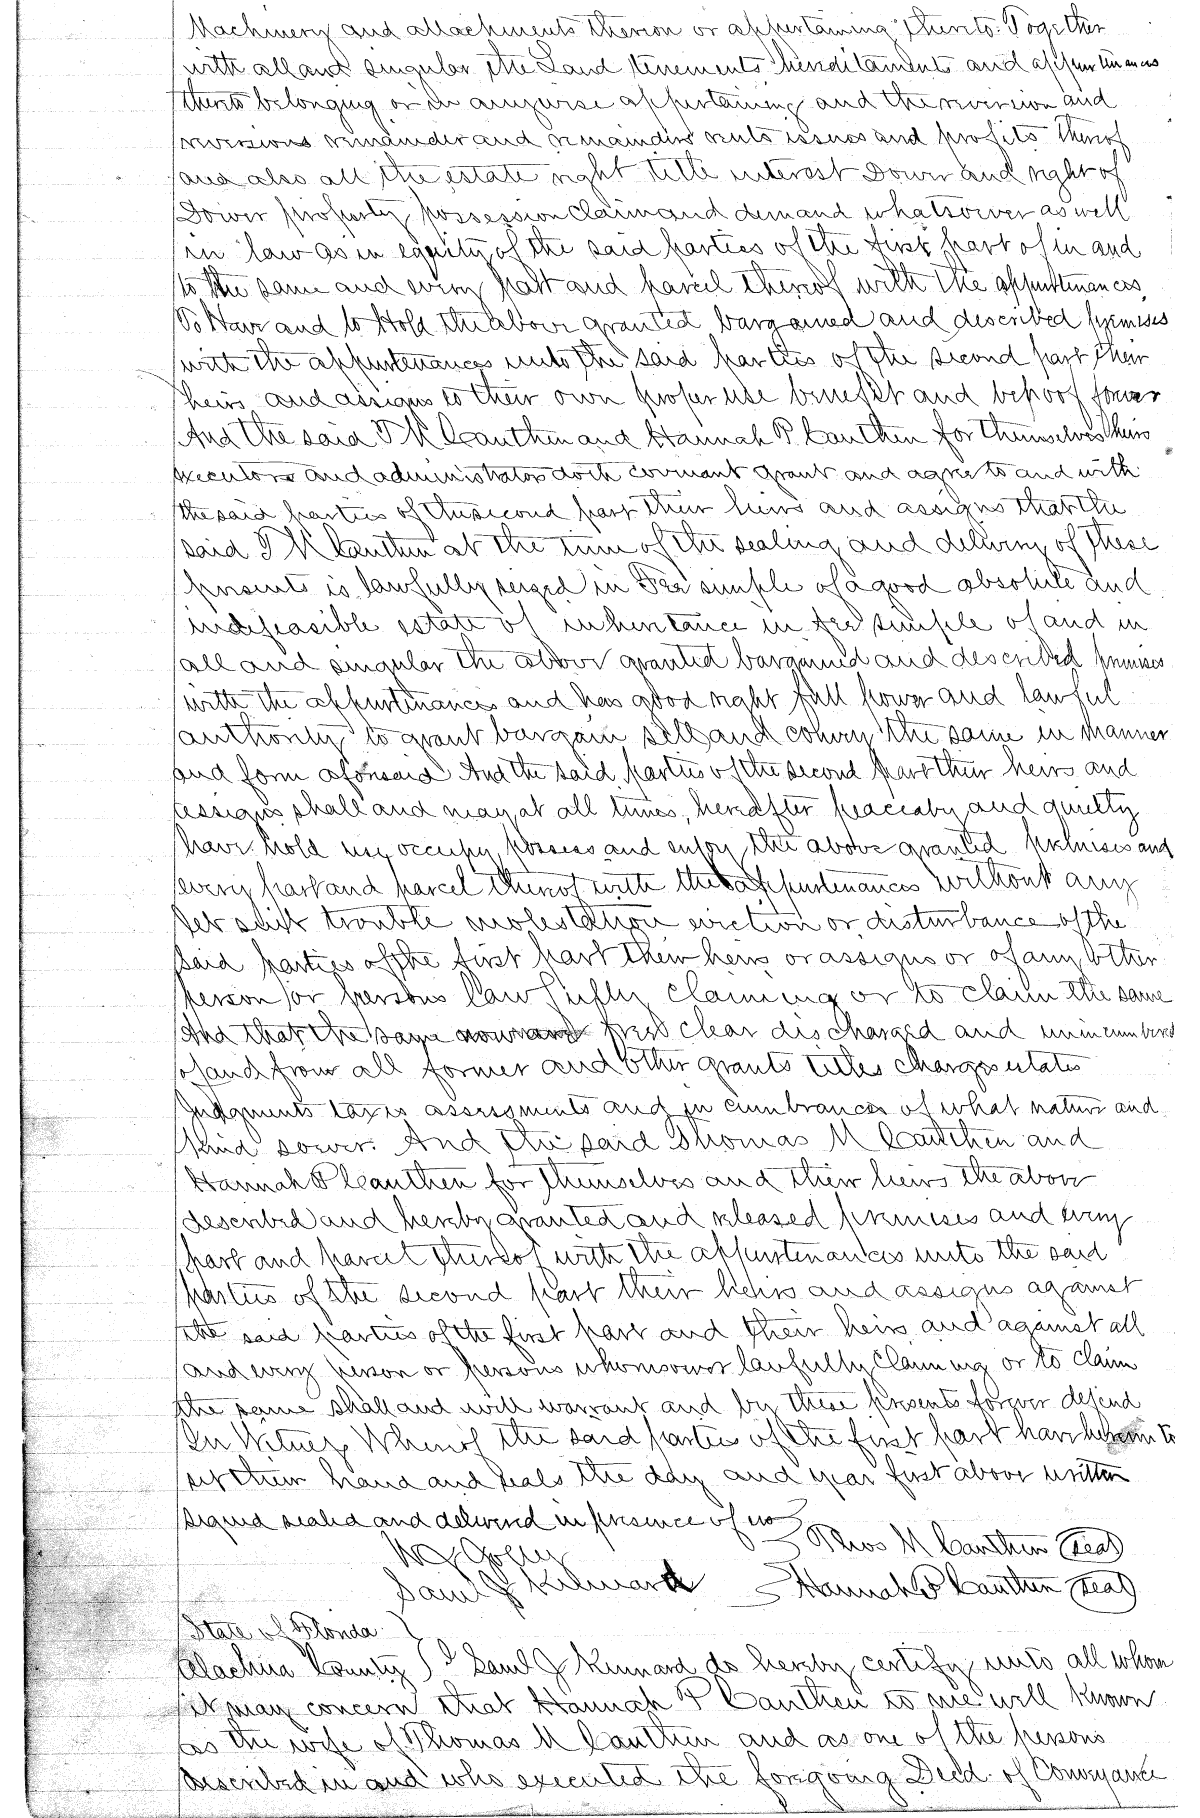 Machinery and attachments thereon or appertaining thereto. Together
with all and singular the Land tenements hereditaments and appurtinances
thereto belonging or in anywise appertaining and the reversion and
reversions remainder and remainders rents issues and profits thereof
and also all the estate right title interest Dower and right of
Dower property possession claim and demand whatsoever as well
in law as in equity of the said parties of the first part of in and
to the same and every part and parcel thereof with the appurtenances
To Have and to Hold the above granted bargained and described premises
with the appurtenances unto the said parties of the second part their
heirs and assigns to their own proper use benefit and behoof forever
And the said T M Cauthen and Hannah P Cauthen for themselves heirs
executors and administrators doth covenant grant and agree to and with
the said parties of the second part their heirs and assigns that the
said T M Cauthen at the time of the sealing and delivery of these
presents is lawfully seized in Fee simple of a good absolute and
indefeasible estate of inheritance in fee simple of and in
all and singular the above granted bargained and described premises
with the appurtenances and has good right full power and lawful
authority to grant bargain sell and convey the same in manner
and form aforesaid And the said parties of the second part their heirs and
assigns shall and may at all times hereafter peaceaby and quietly
have hold use occupy possess and enjoy the above granted premises and
every part and parcel thereof with the appurtenances without any
let suit trouble molestation eviction or disturbance of the
said parties of the first part their heirs or assigns or of any other
person or persons lawfully claiming or to claim the same
And that the same now are free clear discharged and unincumbered
of and from all former and other grants titles charges estates
Judgments taxes assessments and incumbrances of what nature and
kind soever. And the said Thomas M Cauthen and
Hannah P Cauthen for themselves and their heirs the above
described and hereby granted and released premises and every
part and parcel thereof with the appurtenances unto the said
parties of the second part their heirs and assigns against
the said parties of the first part and their heirs and against all
and every person or persons whomsoever lawfully claiming or to claim
the same shall and will warrant and by these presents forever defend
In Witness Whereof the said parties of the first part have hereunto
set their hand and seals the day and year first above written
signed sealed and delivered in presence of us
Thos M Cauthen (seal)
Saml J Kinnard Hannah P Cauthen (seal)
State of Florida
Alachua County I Saml J Kinnard do hereby certify unto all whom
it may concern that Hannah P Cauthen to me well known
as the wife of Thomas M Cauthen and as one of the persons
described in and who executed the foregoing Deed of Conveyance